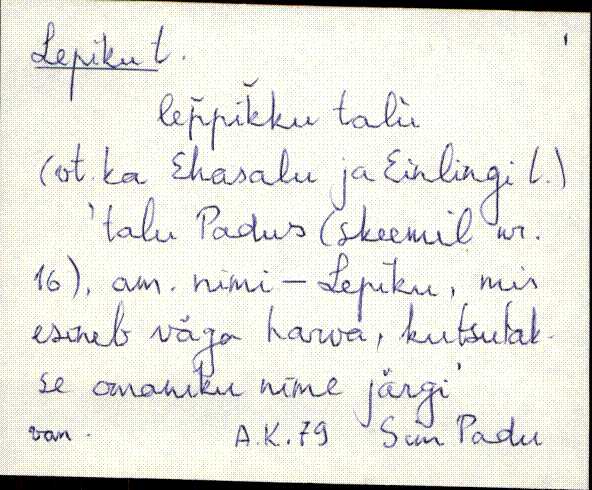 Lepiku t.
lep̆pik̆ku talù
(vt. ka Ehasalu ja Einlingi t.)
'talu Padus (skeemil nr.
16), am. nimi – Lepiku, mis
esineb väga harva, kutsutak-
se omaniku nime järgi'
van. A.K.79 Sim Padu